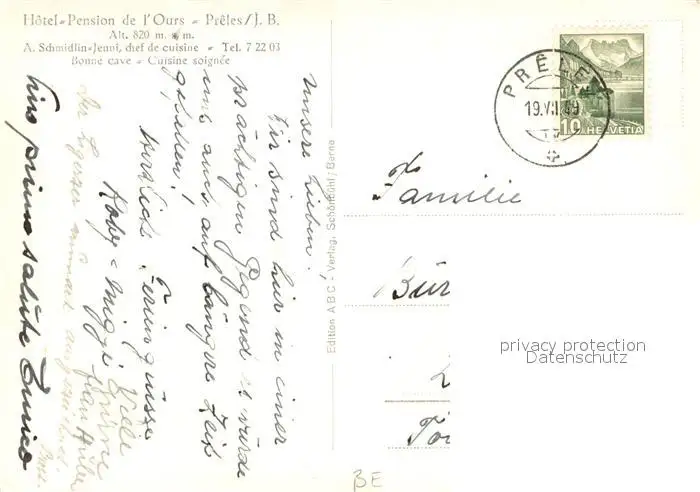 Hôtel-Pension de l'Ours - Prêles/J. B.
Alt. 820 m. s. m.
A. Schmidlin-Jenni, chef de cuisine - Tel. 7 22 03
Bonne cave - Cuisine soignée
Unsere Lieben!
Wir sind hier in einer
prächtigen Gegend es würde
uns auch auf längere Zeit
gefallen!
Herzlich Feriengrüsse
Roby - Miggi
Frau Huber
der Ligerzer
Uno primo salute Enrico
Edition ABC - Verlag, Schönbühl/Berne
PRÊLES
19.VII.49
10 HELVETIA
Familie
Bür
BE
privacy protection
Datenschutz